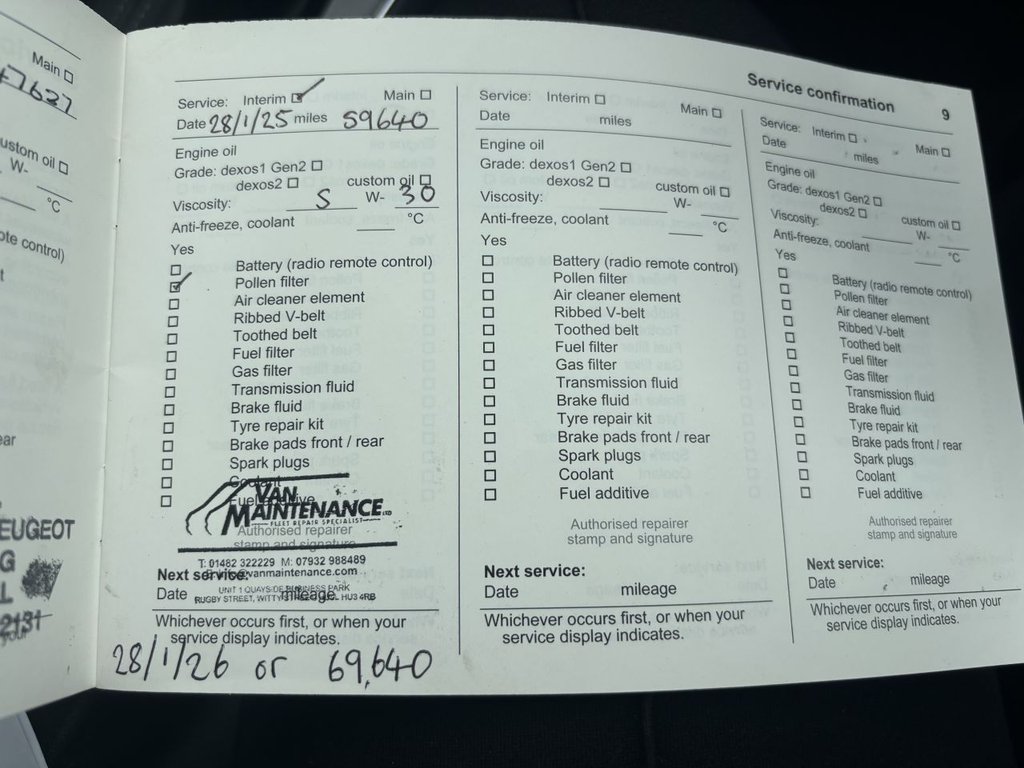 Main
47627
ustom oil
W-
°C
ote control)
EUGEOT
G
L
2131
Service confirmation 9
Service: Interim Main
Date 28/1/25 miles 59640
Engine oil
Grade: dexos1 Gen2
dexos2 custom oil
Viscosity: 5 W- 30
Anti-freeze, coolant °C
Yes
Battery (radio remote control)
Pollen filter
Air cleaner element
Ribbed V-belt
Toothed belt
Fuel filter
Gas filter
Transmission fluid
Brake fluid
Tyre repair kit
Brake pads front / rear
Spark plugs
Coolant
Fuel additive
VAN
MAINTENANCE LTD
FLEET REPAIR SPECIALIST
Authorised repairer
stamp and signature
T: 01482 322229 M: 07932 988489
vanmaintenance.com
Next service:
UNIT 1 QUAYSIDE BUSINESS PARK
Date mileage
RUGBY STREET, HU3 4RB
Whichever occurs first, or when your
service display indicates.
28/1/26 or 69,640
Service: Interim Main
Date miles
Engine oil
Grade: dexos1 Gen2
dexos2 custom oil
Viscosity: W-
Anti-freeze, coolant °C
Yes
Battery (radio remote control)
Pollen filter
Air cleaner element
Ribbed V-belt
Toothed belt
Fuel filter
Gas filter
Transmission fluid
Brake fluid
Tyre repair kit
Brake pads front / rear
Spark plugs
Coolant
Fuel additive
Authorised repairer
stamp and signature
Next service:
Date mileage
Whichever occurs first, or when your
service display indicates.
Service: Interim Main
Date miles
Engine oil
Grade: dexos1 Gen2
dexos2 custom oil
Viscosity: W-
Anti-freeze, coolant °C
Yes
Battery (radio remote control)
Pollen filter
Air cleaner element
Ribbed V-belt
Toothed belt
Fuel filter
Gas filter
Transmission fluid
Brake fluid
Tyre repair kit
Brake pads front / rear
Spark plugs
Coolant
Fuel additive
Authorised repairer
stamp and signature
Next service:
Date mileage
Whichever occurs first, or when your
service display indicates.